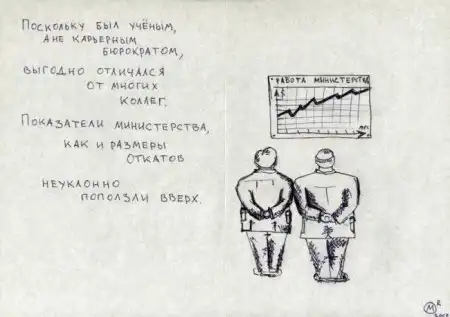 Поскольку был учёным,
а не карьерным
бюрократом,
выгодно отличался
от многих
коллег.
Показатели министерства,
как и размеры
откатов
неуклонно
поползли вверх.
Работа министерства
$
M